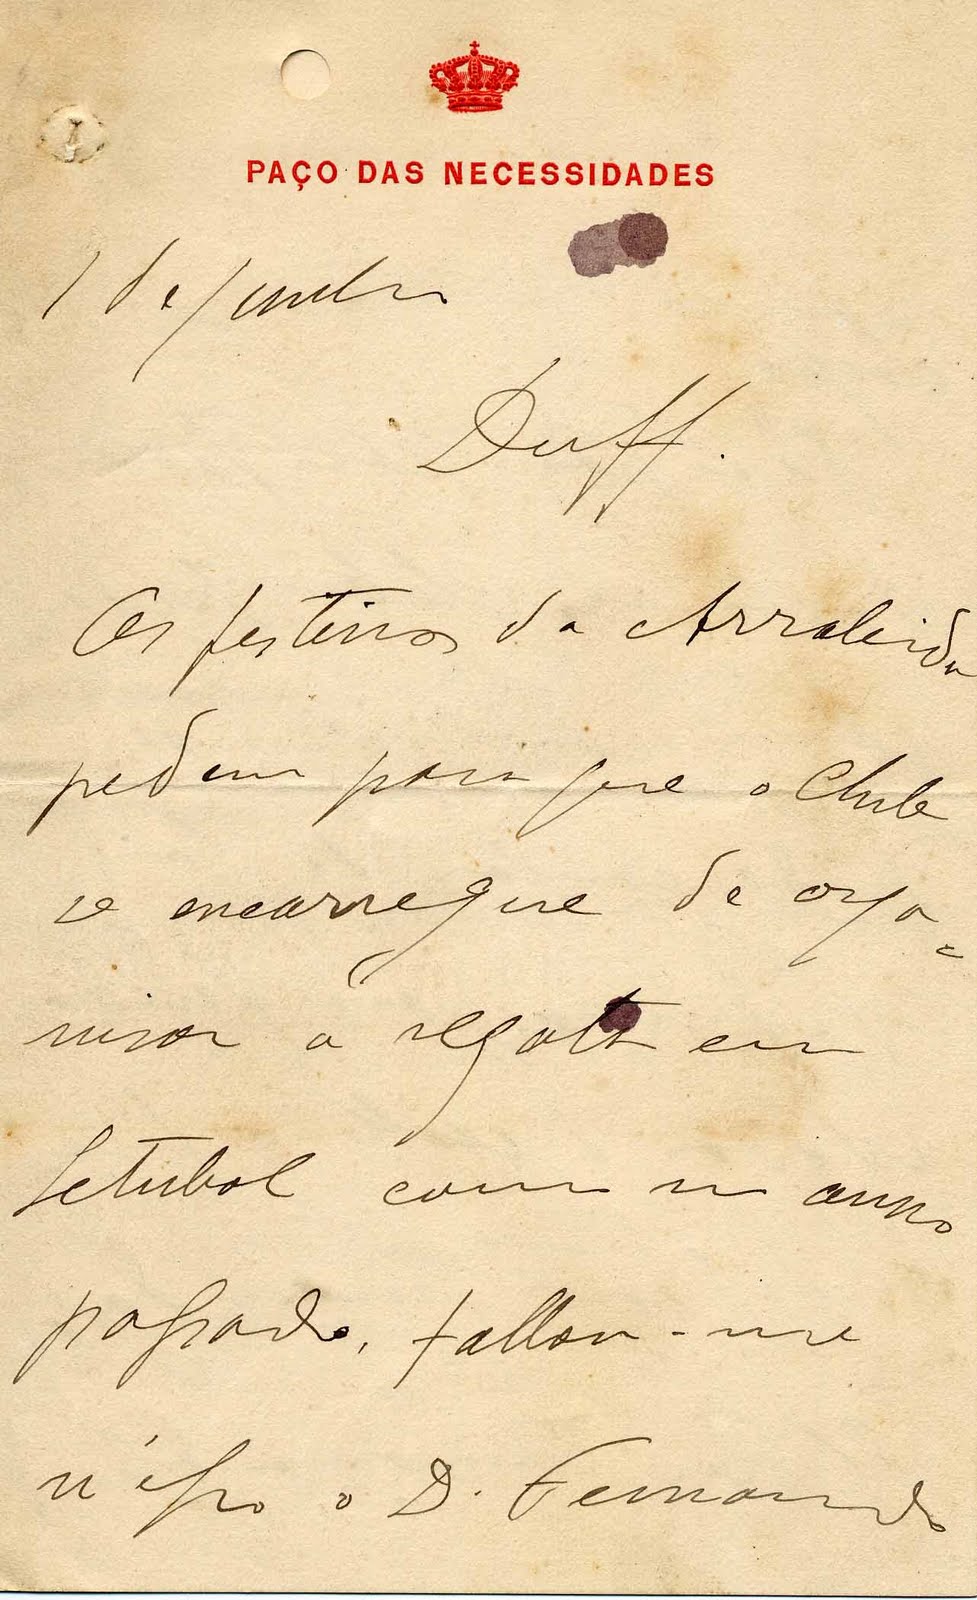 PAÇO DAS NECESSIDADES
1 de Junho
Duff.
Os festeiros da Arrabida
pedem para que o Club
se encarregue de orga=
nisar a regata em
Setubal como no anno
passado, fallou-me
n'isso o D. Fernando